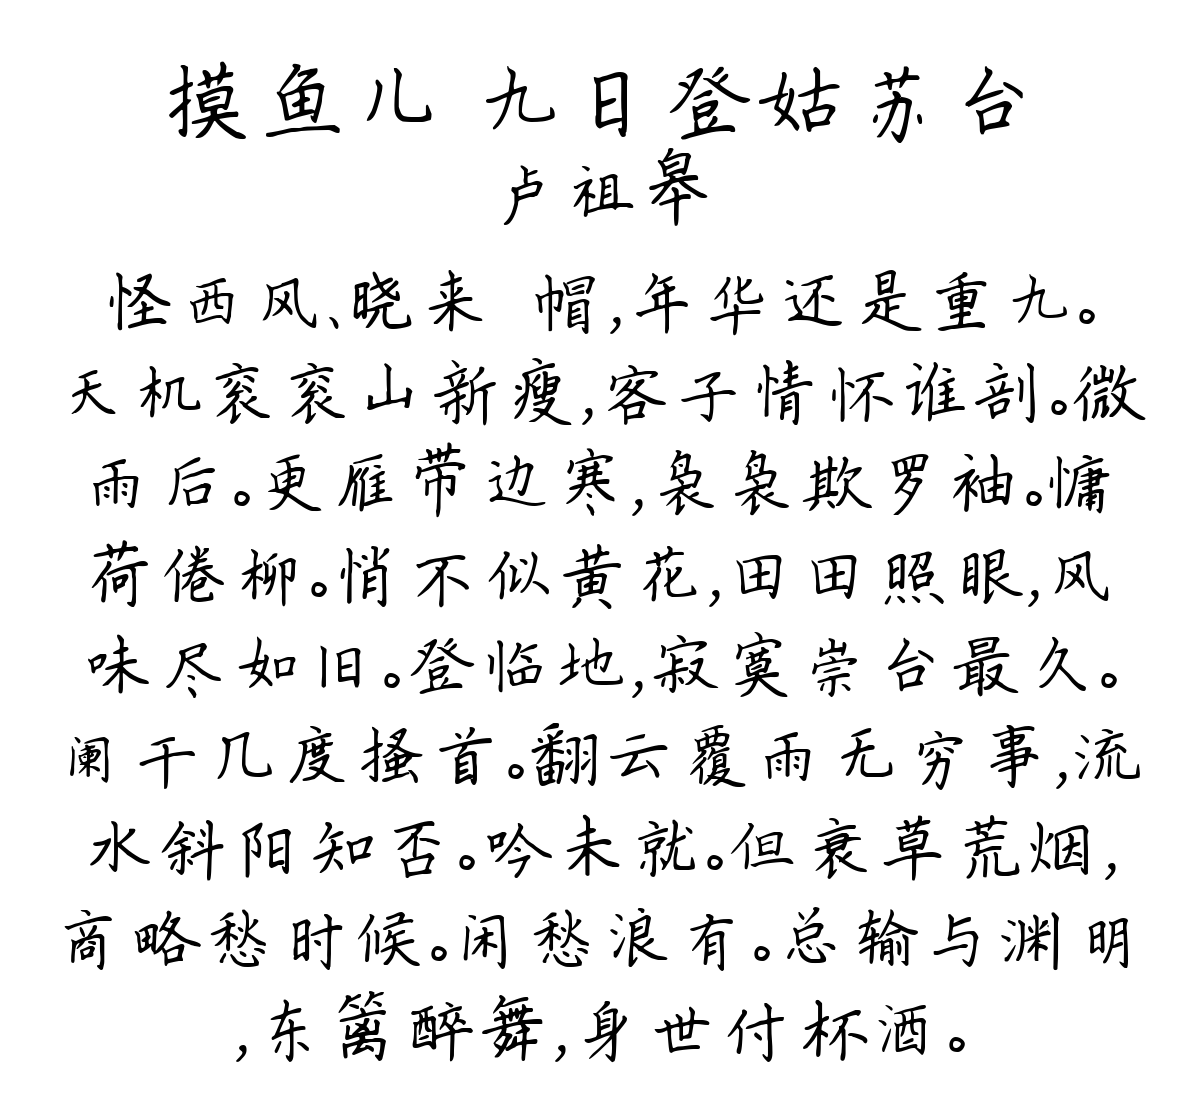 摸鱼儿 九日登姑苏台
卢祖皋
怪西风、晓来 帽,年华还是重九。
天机衮衮山新瘦,客子情怀谁剖。微
雨后。更雁带边寒,袅袅欺罗袖。慵
荷倦柳。悄不似黄花,田田照眼,风
味尽如旧。登临地,寂寞崇台最久。
阑干几度搔首。翻云覆雨无穷事,流
水斜阳知否。吟未就。但衰草荒烟,
商略愁时候。闲愁浪有。总输与渊明
,东篱醉舞,身世付杯酒。